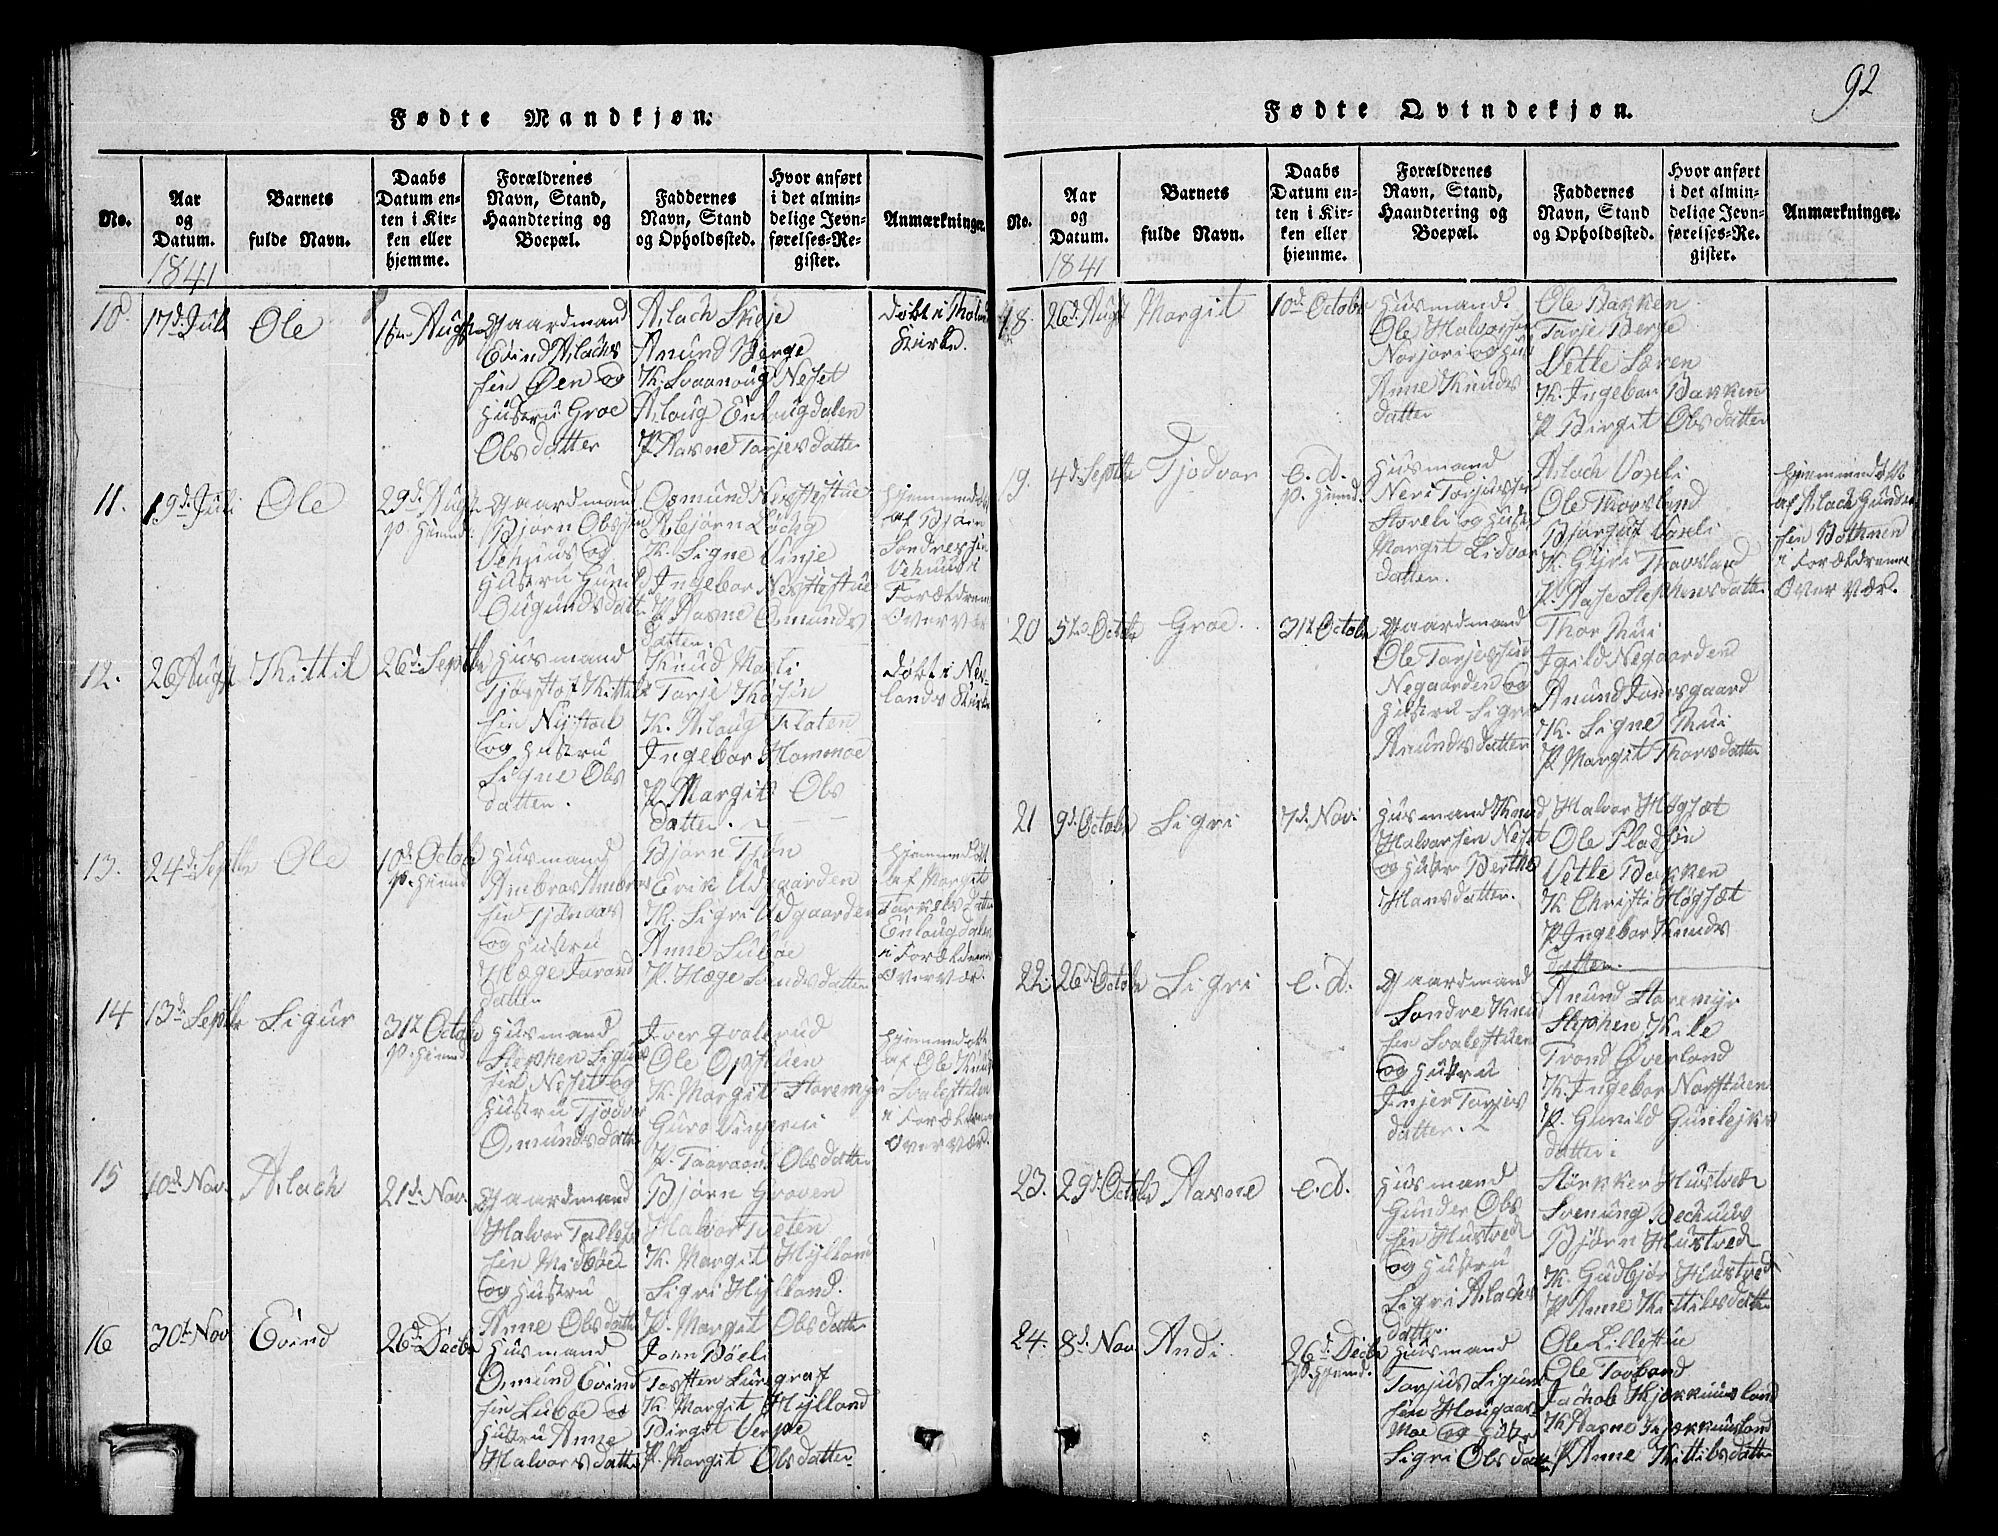 92
Fødte Mandkjøn.
No.
Aar
og
Datum.
Barnets
fulde Navn.
Daabs
Datum en-
ten i Kir-
ken eller
hjemme.
Forældrenes
Navn, Stand,
Haandtering og
Boepæl.
Faddernes
Navn, Stand
og Opholdssted.
Hvor anført
i det almin-
delige Jevn-
førelses-Re-
gister.
Anmærkninger.
1841
10.
17d. Juli
Ole
Gaardmand
Eivind Aslachs
sen Øen og
Hustru Groe
Olsdatter
Aslach Skieje
Anund Berge
K. Svaanoug Neset
Aslaug Enlougdalen
P. Aasne Tarjesdatter
Kirke.
11.
19d. Juli
Ole
29d. Augst
p. Hiemd.
Gaardmand
Bjørn Olssen
Vehuus og
Hustru Gunild
Ougundsdatt
Osmund Nesstestue
K. Signe Vinje
Ingebor Nesstestue
P. Aasne Osmunds
datter.
Hjemmedøbt
af Bjørn
Sondressen
Vehuus i
Forældrenes
Overvær
12.
26 Augst
Kittil
26d. Septbr
Husmand
Kittils
sen Nystad
og Hustru
Signe Ols
datter.
Knud Mosli
K. Aslaug Flaten
Ingebor Hommoe
P. Margit Ols
datter.
Døbt i Nes-
lands Kirke
13.
24d. Septbr
Ole
10d. Octobr
p. Hiemd
Husmand
Ambros Ambros
sen Tjønaas
og Hustru
Hæge Jorand
datter
Bjørn Tjøn
Erik Udgaarden
K. Sigri Udgaarden
Anne Lubøe
P. Hæge Svendsdatter
Hjemmedøbt
af Margit
Tarkelsdatter
Enlougdalen
i Forældrenes
Overvær.
14
13d. Septbr
Sigur
31t Octobr
p. Hiemd
Husmand
Stephen Sigurs
sen Neset og
Hustru Tjodvor
Osmundsdatter
Iver Qvalerud
Ole Opstuen
K. Margit Staremyr
Guro Vinjerui
P. Taaraand Olsdatter
Hjemmedøbt
af Ole Knuds
Svalestuen
i Forældrenes
Overvær.
15
10d. Nov.
Aslach
21d. Nov.
Gaardmand
Halvor Tallefs
sen Midbøe
og Hustru
Anne Olsdatter
Bjørn Groven
Halvor Tveten
K. Margit Hylland
Sigri Hylland.
P. Margit Olsdatter
16
30t Nov
Evind
26d. Decbr
Husmand
Osmund Evind
sen Lubøe og
Hustru Anne
Halvorsdatter
John Bøeli
Torsten Luregraf
K. Margit Hylland
Birgit Verpe
P. Margit Olsdatter
Fødte Qvindekjøn.
No.
Aar
og
Datum.
Barnets
fulde Navn.
Daabs
Datum en-
ten i Kir-
ken eller
hjemme.
Forældrenes
Navn, Stand,
Haandtering og
Boepæl.
Faddernes
Navn, Stand
og Opholdssted.
Hvor anført
i det almin-
delige Jevn-
førelses-Re-
gister.
Anmærkninger.
1841
18.
26d. Augt
Margit
10d. Octobr
Husmand.
Ole Halvorsen
Norjori og Hus
Anne Knuds
datter
Ole Bakken
Tarje Berge
Vetle Særen
K. Ingebor Bakken
P. Birgit Olsdatter
19.
4d. Septbr
Tjodvor
e.d.
p. Hiemd.
Husmand
Neri Torjussen
Storeli og Hustru
Margit Lidvor
datter.
Aslach Voxeli
Ole Thovsland
Bjørgut Voxeli
K. Gyri Thovsland
P. Aase Stephensdatter
Hjemmedøbt
af Aslach Gunder
sen Bothnen
i Forældrenes
Overvær.
20
5te Octobr
Groe.
31t Octobr
Gaardmand
Ole Tarjessen
Negaarden og
Hustru Sigri
Anundsdatter
Thor Rui
Igild Negaarden
Anund Jonsgaard
K. Signe Rui
P. Margit Thorsdatter
21
9d. Octobr
Sigri
7d. Nov.
Husmand Knud
Halvorsen Neset
og Hustr Berthe
Hansdatter.
Halvor Høgsæt
Ole Pladsen
Vetle Bakken
K Christi Høgsæt
P. Ingebor Knuds
datter.
22.
26d. Octobr
Sigri
e.d.
Gaardmand
Sondre Knud
sen Svalestuen
og Hustru
Injer Tarjes
datter.
Anund Staremyr
Stephen Kile
Trond Øverland
K. Ingebor Norstuen
P. Gunild Gunlejks
datter.
23.
29d. Octobr
Aasne
e.d.
Husmand
Gunder Ols
sen Hustved
og Hustru
Sigri Aslachs
datter.
Størkker Hustved
Svenung Bechuus
Bjørn Hustved
K. Gudbjør Hustved
P. Anne Kittilsdatter
24.
8d. Nov
Andi.
26d. Decbr
p. Hjemd.
Husmand
Torjus Sigurs
sen Hougaas-
moe og Hustr
Sigri Olsdatter
Ole Lillestue
Ole Tovsland
Jachob Kjørkuusland
K Aasne Kjørkuusland
P Anne Kittilsdatter